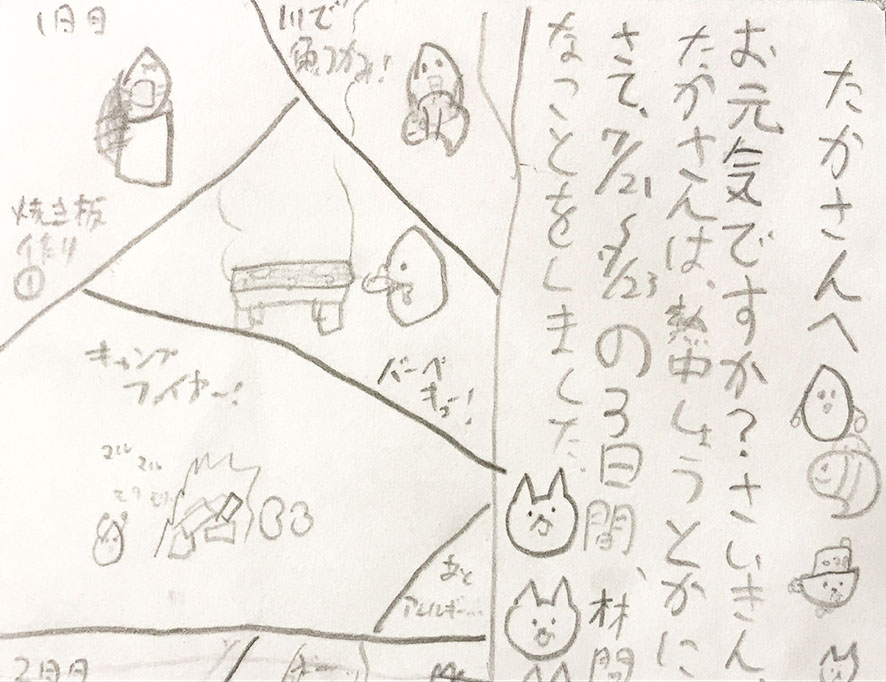 たかさんへ
お元気ですか?さいきん、
たかさんは、熱中しょうとかに
さて、7/21〜7/23の3日間、林間
なっことをしました。
1日目
川で
魚つかみ!
焼き板
作り
①
バーベ
キュー!
キャンプ
ファイヤー!
マル
マル
モリ
モリ
あと
アレルギー…
2日目